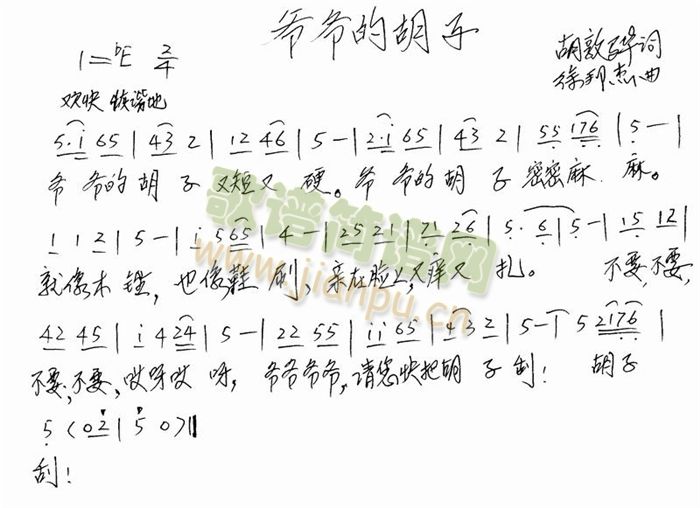 爷爷的胡子
1=bE 2/4
胡敦骅词
徐邦杰曲
欢快 诙谐地
5·i 65 | 43 2 | 12 46 | 5 - | 2·i 65 | 43 2 | 55 176 | 5 - |
爷爷的胡子又短又硬。爷爷的胡子密密麻麻。
1 1 2 | 5 - | i 565 | 4 - | 25 21 | 71 26 | 5· 6 | 5 - | 15 12 |
就像木锉,也像鞋刷,亲在脸上又痒又扎。不要,不要,
42 45 | i 424 | 5 - | 22 55 | ii 65 | 43 2 | 5 - | 5 2176 |
不要,不要,哎呀哎呀,爷爷爷爷,请您快把胡子刮!胡子
5 (02 | 5 0)||
刮!
歌谱简谱网
www.jianpu.cn